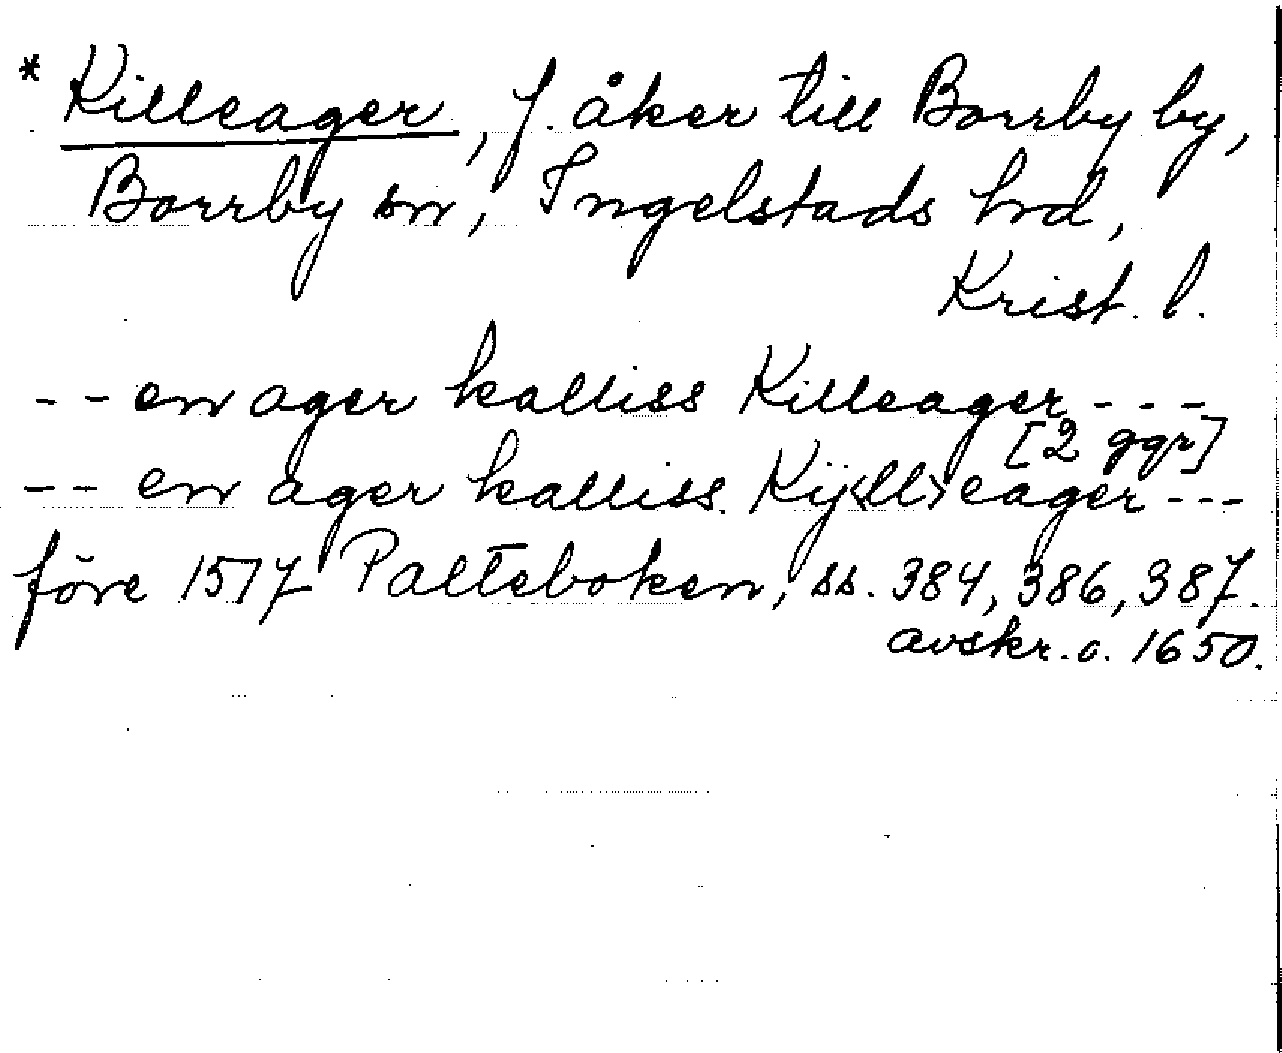 * Killeager, f. åker till Borrby by,
Borrby sn, Ingelstads hrd,
Krist. l.
-- en ager kalliss Killeager ---
[2 ggr]
-- en ager kalliss Kÿ<ll>eager ---
före 1577 Palteboken, ss. 384, 386, 387.
avskr. c. 1650.